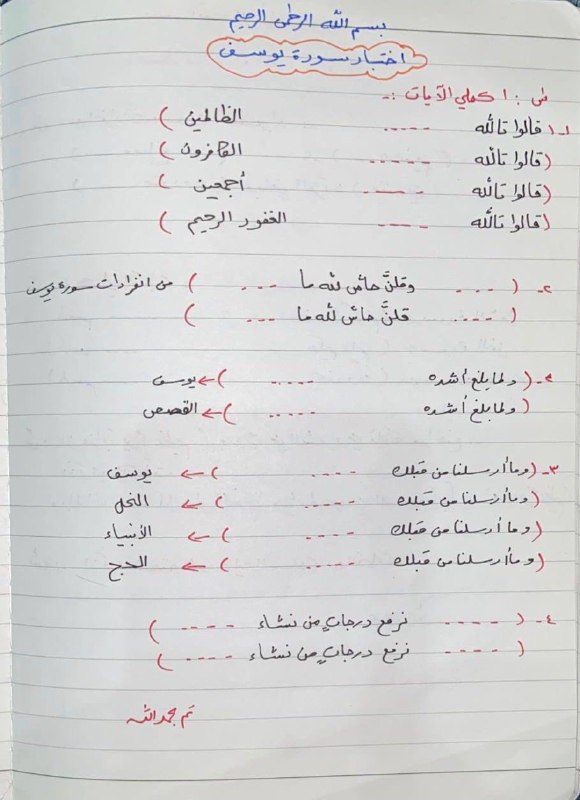 بسم الله الرحمن الرحيم
اختبار سورة يوسف
س١: اكملي الآيات :-
١- ( قالوا تالله ..... الظالمين )
( قالوا تالله ..... الكافرون )
( قالوا تالله ..... أجمعين )
( قالوا تالله ..... الغفور الرحيم )
٢- ( .... وقلنَّ حاش لله ما .... ) من انفرادات سورة يوسف
( .... قلنَّ حاش لله ما .... )
٢- ( ولما بلغ أشده ..... ) ← يوسف
( ولما بلغ أشده ..... ) ← القصص
٣- ( وما أرسلنا من قبلك ..... ) ← يوسف
( وما أرسلنا من قبلك ..... ) ← النحل
( وما أرسلنا من قبلك ..... ) ← الأنبياء
( وما أرسلنا من قبلك ..... ) ← الحج
٤- ( ..... نرفع درجاتٍ من نشاء ..... )
( ..... نرفع درجاتٍ من نشاء ..... )
تم بحمد الله